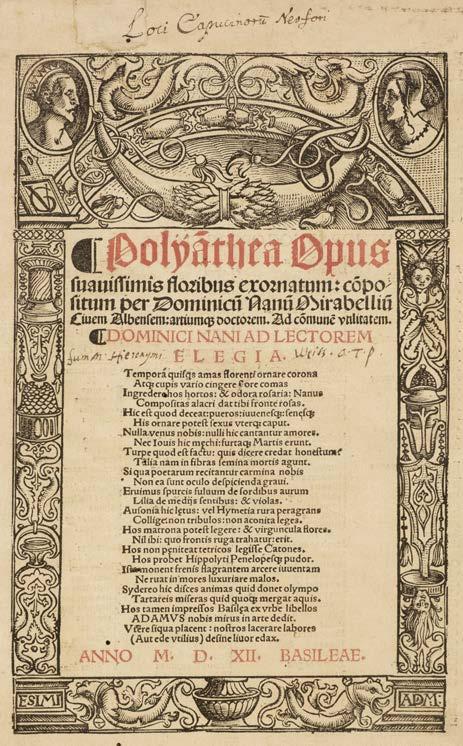 Loci Capucinorũ Neofori
¶ Polyãthea Opus
suauissimis floribus exornatum: cõpo-
situm per Dominicũ Nanũ Mirabelliũ
Ciuem Albensem: artiumq; doctorem. Ad cõmunẽ vtilitatem.
¶ DOMINICI NANI AD LECTOREM
sum M. Hieronymi Weiss. S. T. P
ELEGIA.
Temporã quisq̃s amas florenti ornare corona
Atq; cupis vario cingere flore comas
Ingredere hos hortos: & odora rosaria: Nanus
Compositas alacri dat tibi fronte rosas.
Hic est quod deceat: pueros: iuuenesq;: senesq;
His ornare potest sexus vterq; caput.
Nulla venus nobis: nulli hic cantantur amores.
Nec Iouis hic mẹchi: furtaq; Martis erunt.
Turpe quod est factu: quis dicere credat honestum?
Talia nam in fibras semina mortis agunt.
Si qua poetarum recitantur carmina nobis
Non ea sunt oculo despicienda graui.
Eruimus spurcis fuluum de sordibus aurum
Lilia de medijs sentibus: & violas.
Ausonia hic lẹtus: vel Hymetia rura peragrans
Collige: non tribulos: non aconita leges.
Hos matrona potest legere: & virguncula flores.
Nil ibi: quo frontis ruga trahatur: erit.
Hos non peniteat tetricos legisse Catones.
Hos probet Hippolyti Penelopesq; pudor.
Ista monent frenis flagrantem arcere iuuentam
Ne ruat in mores luxuriare malos.
Sydereo hic disces animas quid donet olympo
Tartareis miseras quid quoq; mergat aquis.
Hos tamen impressos Basilẹa ex vrbe libellos
ADAMVS nobis mirus in arte dedit.
Viuere si qua placent: nostros lacerare labores
(Aut ede vtilius) desine liuor edax.
ANNO M. D. XII. BASILEAE.
ESIMI
ADM